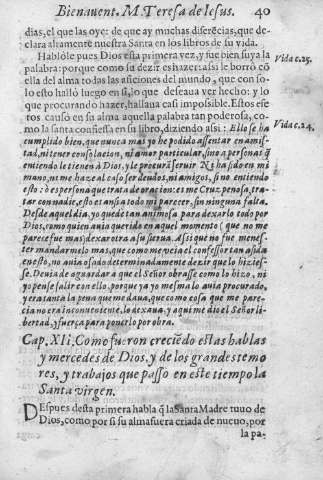 Bienauent. M. Teresa de Iesus. 40
dias, el que las oye: de que ay muchas diferẽcias, que de-
clara altamente nuestra Santa en los libros de su vida.
Hablóle pues Dios esta primera vez, y fue bien suya la
palabra: porque como su dezir es hazer: assi le borró cõ
ella del alma todas las aficiones del mundo, que con so-
lo esto halló luego en si, lo que deseaua ver hecho: y lo
que procurando hazer, hallaua casi impossible. Estos efe
tos causó en su alma aquella palabra tan poderosa, co-
mo la santa confiessa en su libro, diziendo assi: Ello se ha
cumplido bien, que nunca mas yo he podido assentar en amis-
tad, ni tener consolacion, ni amor particular, sino a personas q̃
entiendo le tienen a Dios, y le procurã seruir. Ni ha sido en mi
mano, ni me haze al caso ser deudos, ni amigos, si no entiendo
esto: ò es persona que trata de oracion: es me Cruz penosa, tra-
tar con nadie, esto es ansi a todo mi parecer, sin ninguna falta.
Desde aquel dia, yo quedè tan animosa para dexarlo todo por
Dios, como quien auia querido en aquel momento (que no me
parece fue mas) dexar otra a su sierua. Assi que no fue menes-
ter mandarmelo mas, que como me veia el confessor tan asida
en esto, no auia osado determinadamente dezir que lo hizies-
se. Deuia de aguardar a que el Señor obrasse como lo hizo, ni
yo pense salir con ello, porque ya yo mesma lo auia procurado,
y era tanta la pena que me daua, que como cosa que me pare-
cia no era inconueniente, lo dexaua, y aqui me dio el Señor li-
bertad, y fuerça para ponerlo por obra.
Cap. XII. Como fueron creciẽdo estas hablas
y mercedes de Dios, y de los grandes temo
res, y trabajos que passo en este tiempo la
Santa virgen.
Despues desta primera habla q̃ la Santa Madre tuuo de
Dios, como por si su alma fuera criada de nueuo, por
la pa-
Vida c. 25.
Vida c. 24.